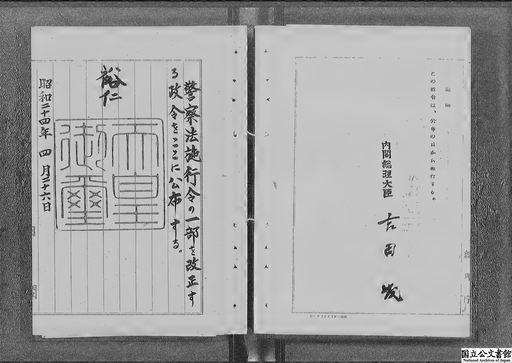 警察法施行令の一部を改正す
る政令をここに公布する。
裕仁
天皇
御璽
昭和二十四年四月二十六日
この政令は、公布の日から施行する。
内閣総理大臣 吉田茂
国立公文書館
National Archives of Japan